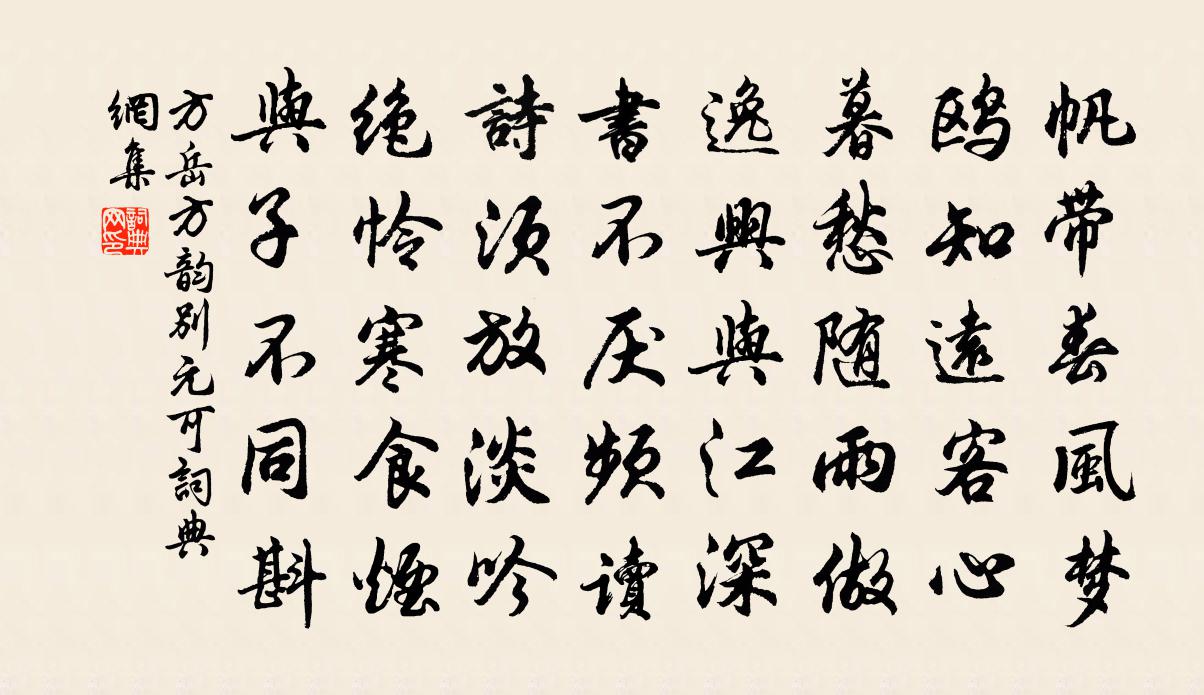 帆带春風梦
鸥知遠客心
暮愁随雨做
逸興與江深
書不厌頻讀
詩须放淡吟
绝怜寒食煙
與子不同斟
方岳方韵别元可詞典
網集
詞典
网印